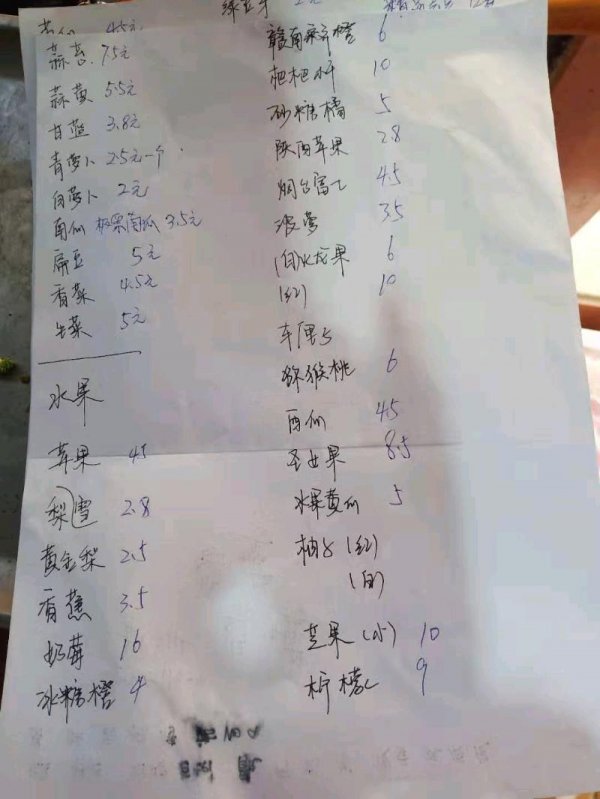 4.5元
蒜苔 7.5元
蒜黄 5.5元
甘蓝 3.8元
青萝卜 2.5元一个
白萝卜 2元
南瓜 板栗南瓜 3.5元
扁豆 5元
香菜 4.5元
生菜 5元
水果
苹果 45
梨雪 2.8
黄金梨 2.5
香蕉 3.5
奶莓 16
冰糖橙 4
赣南脐橙 6
粑粑小千 10
砂糖橘 5
陕西苹果 28
烟台富士 45
菠萝 35
(白)火龙果 6
(红) 10
车厘子
猕猴桃 6
西瓜 45
圣女果 8.5
水果黄瓜 5
柚子 (红)
(白)
芒果 (小) 10
柠檬 9